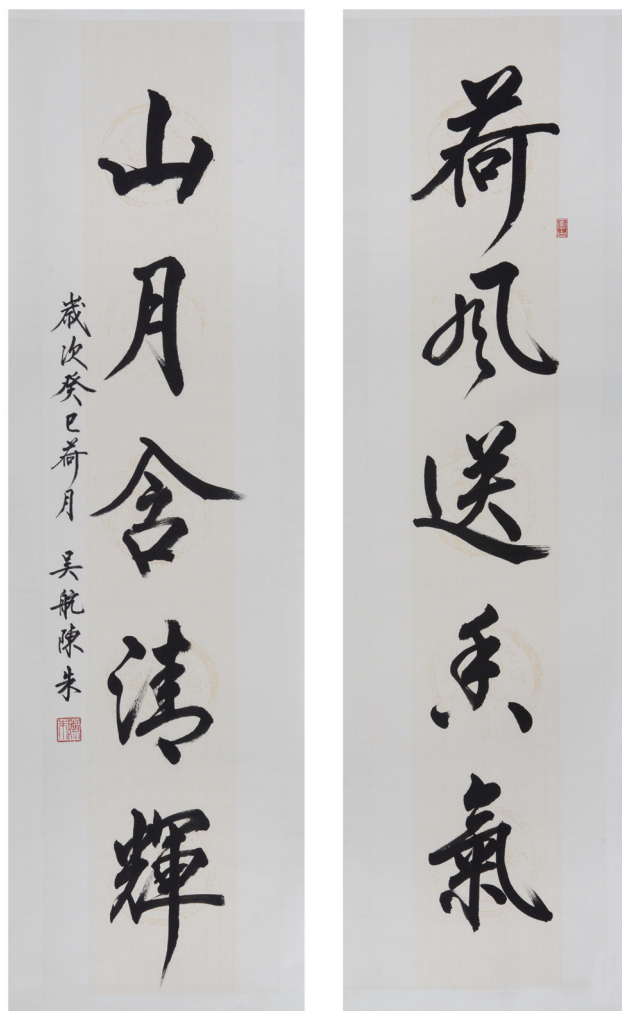 荷风送香氣
山月含清輝
歲次癸巳荷月 吴航陳朱